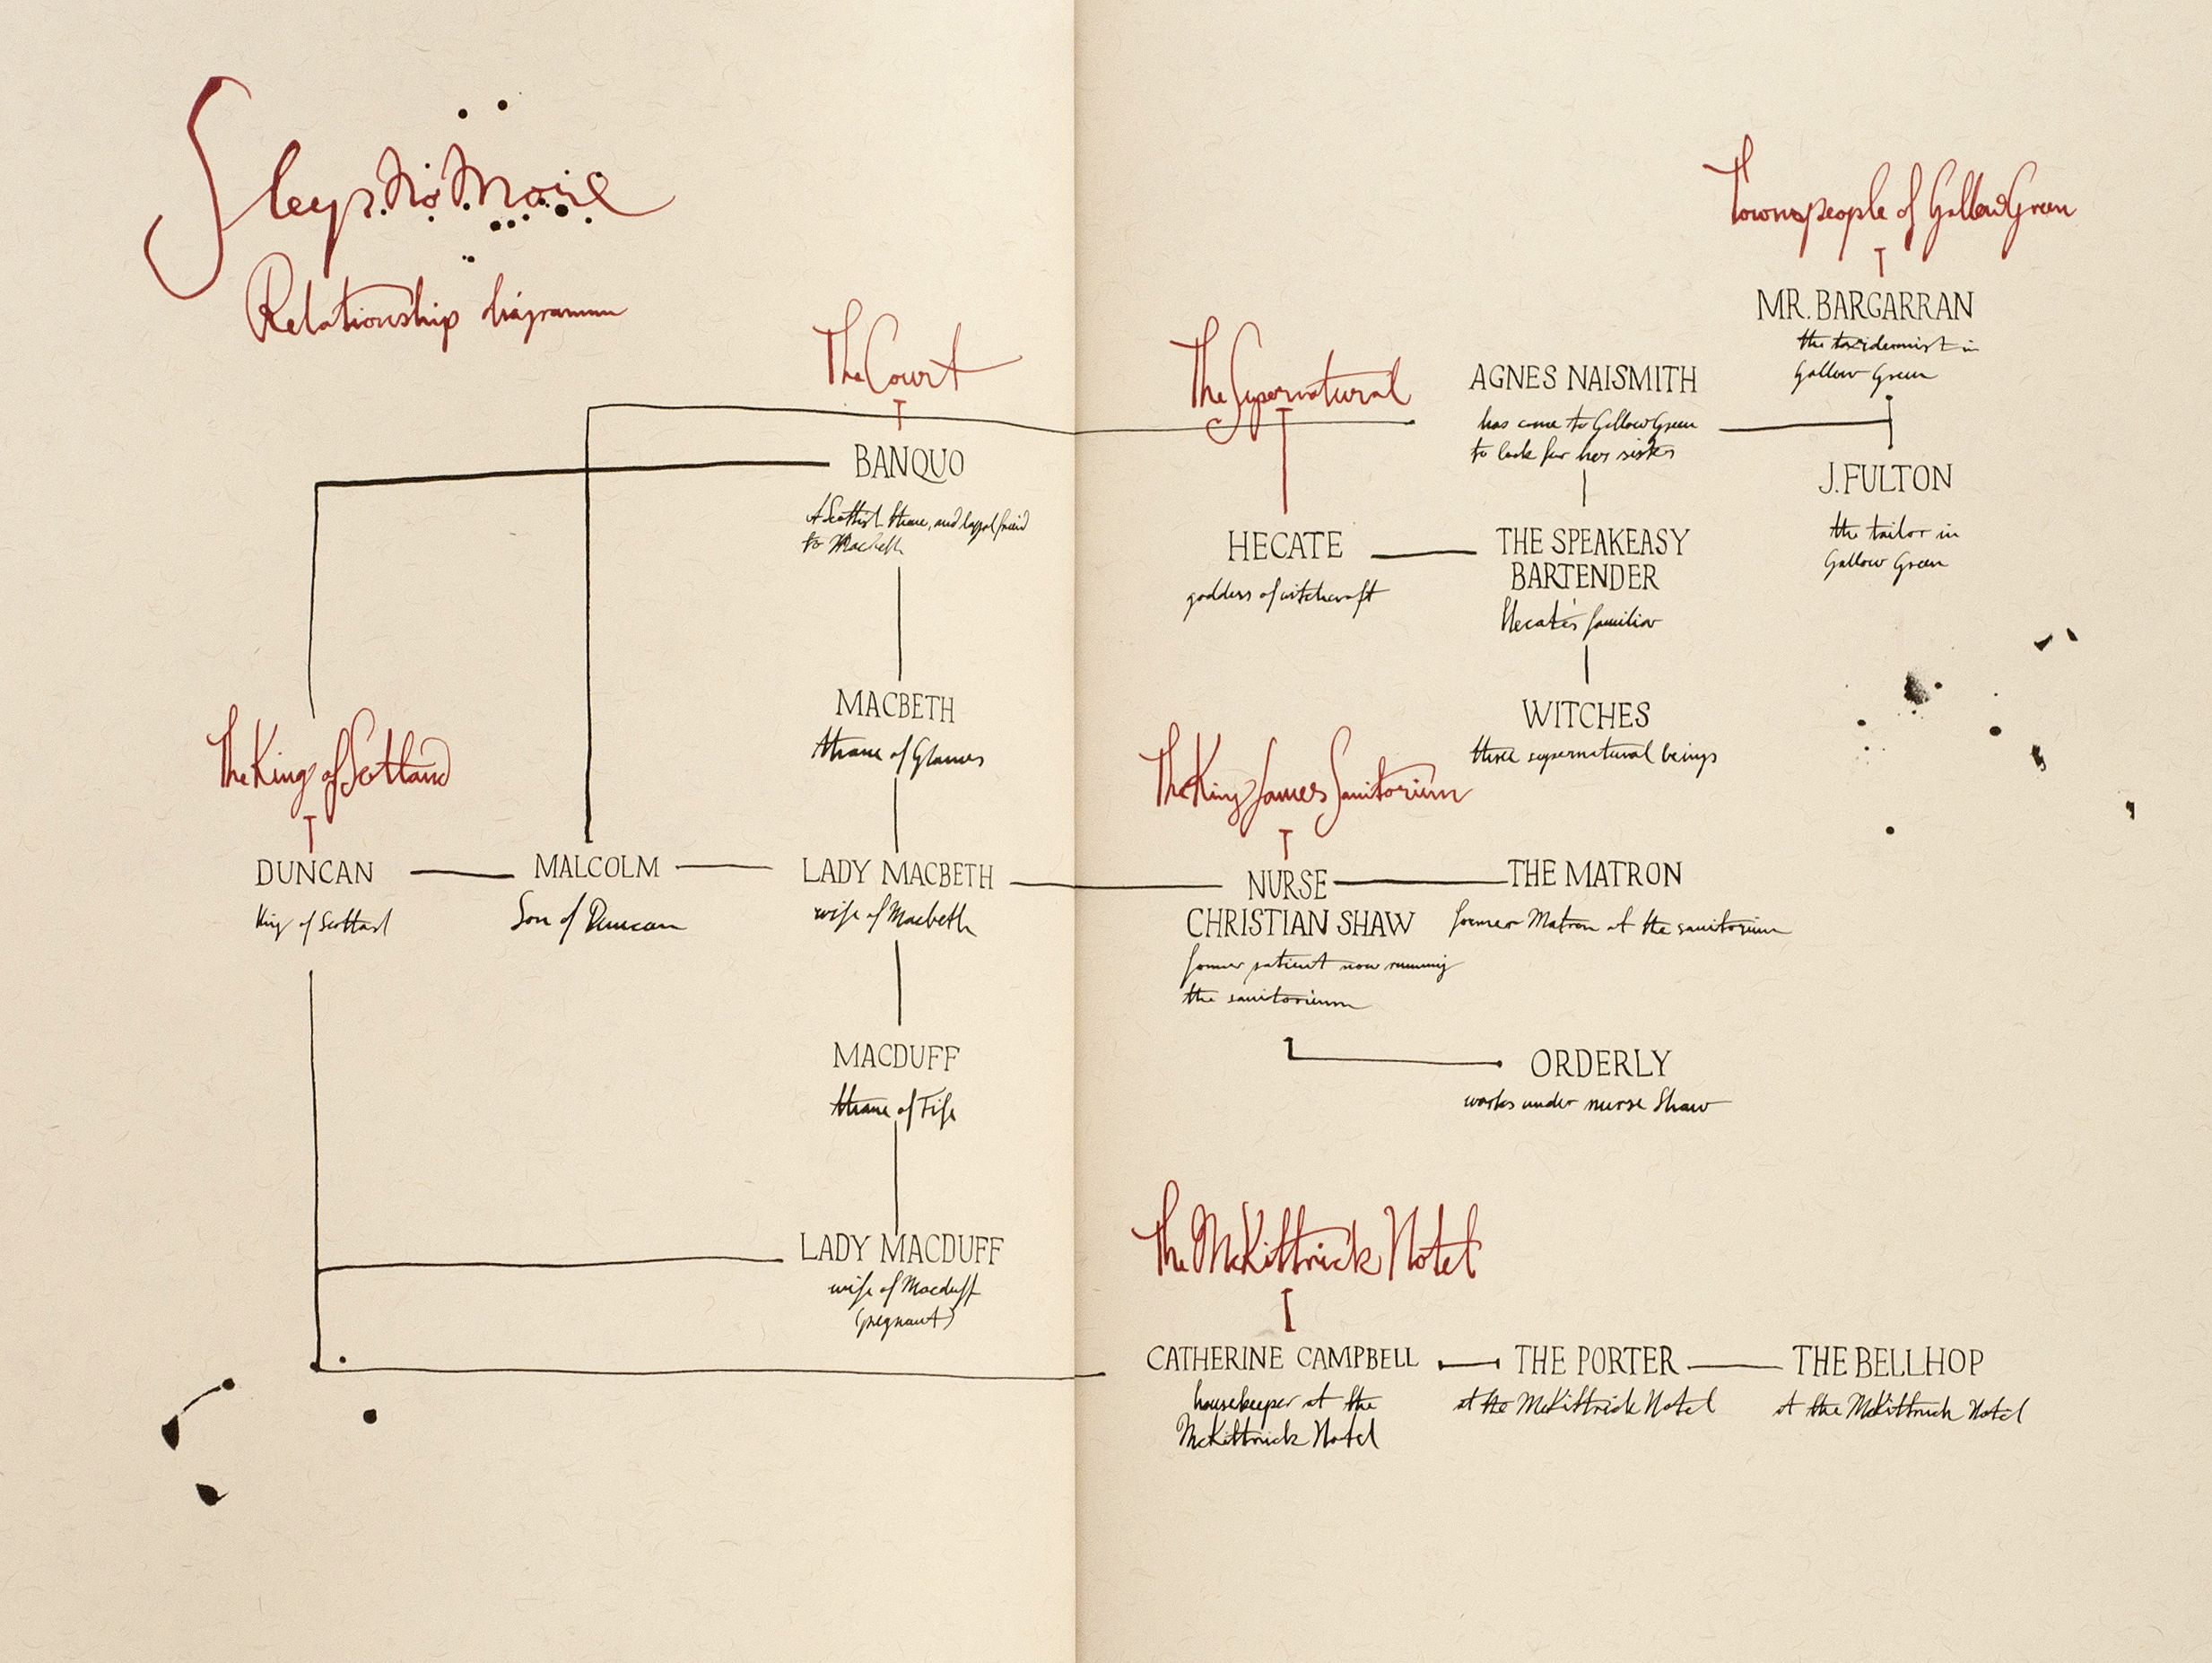 Sleep No More
Relationship diagramm
The Court
BANQUO
A Scottish thane, and loyal friend
to Macbeth
MACBETH
thane of Glames
The King of Scotland
DUNCAN
King of Scotland
MALCOLM
Son of Duncan
LADY MACBETH
wife of Macbeth
MACDUFF
thane of Fife
LADY MACDUFF
wife of Macduff
(pregnant)
The Supernatural
HECATE
goddess of witchcraft
AGNES NAISMITH
has come to Gallow Green
to look for her sister
THE SPEAKEASY
BARTENDER
Hecate's familiar
WITCHES
three supernatural beings
Townspeople of Gallow Green
MR. BARGARRAN
the taxidermist in
Gallow Green
J. FULTON
the tailor in
Gallow Green
The King James Sanitorium
NURSE
CHRISTIAN SHAW
former patient now running
the sanitorium
THE MATRON
former Matron at the sanitorium
ORDERLY
works under nurse Shaw
The McKittrick Hotel
CATHERINE CAMPBELL
housekeeper at the
McKittrick Hotel
THE PORTER
at the McKittrick Hotel
THE BELLHOP
at the McKittrick Hotel